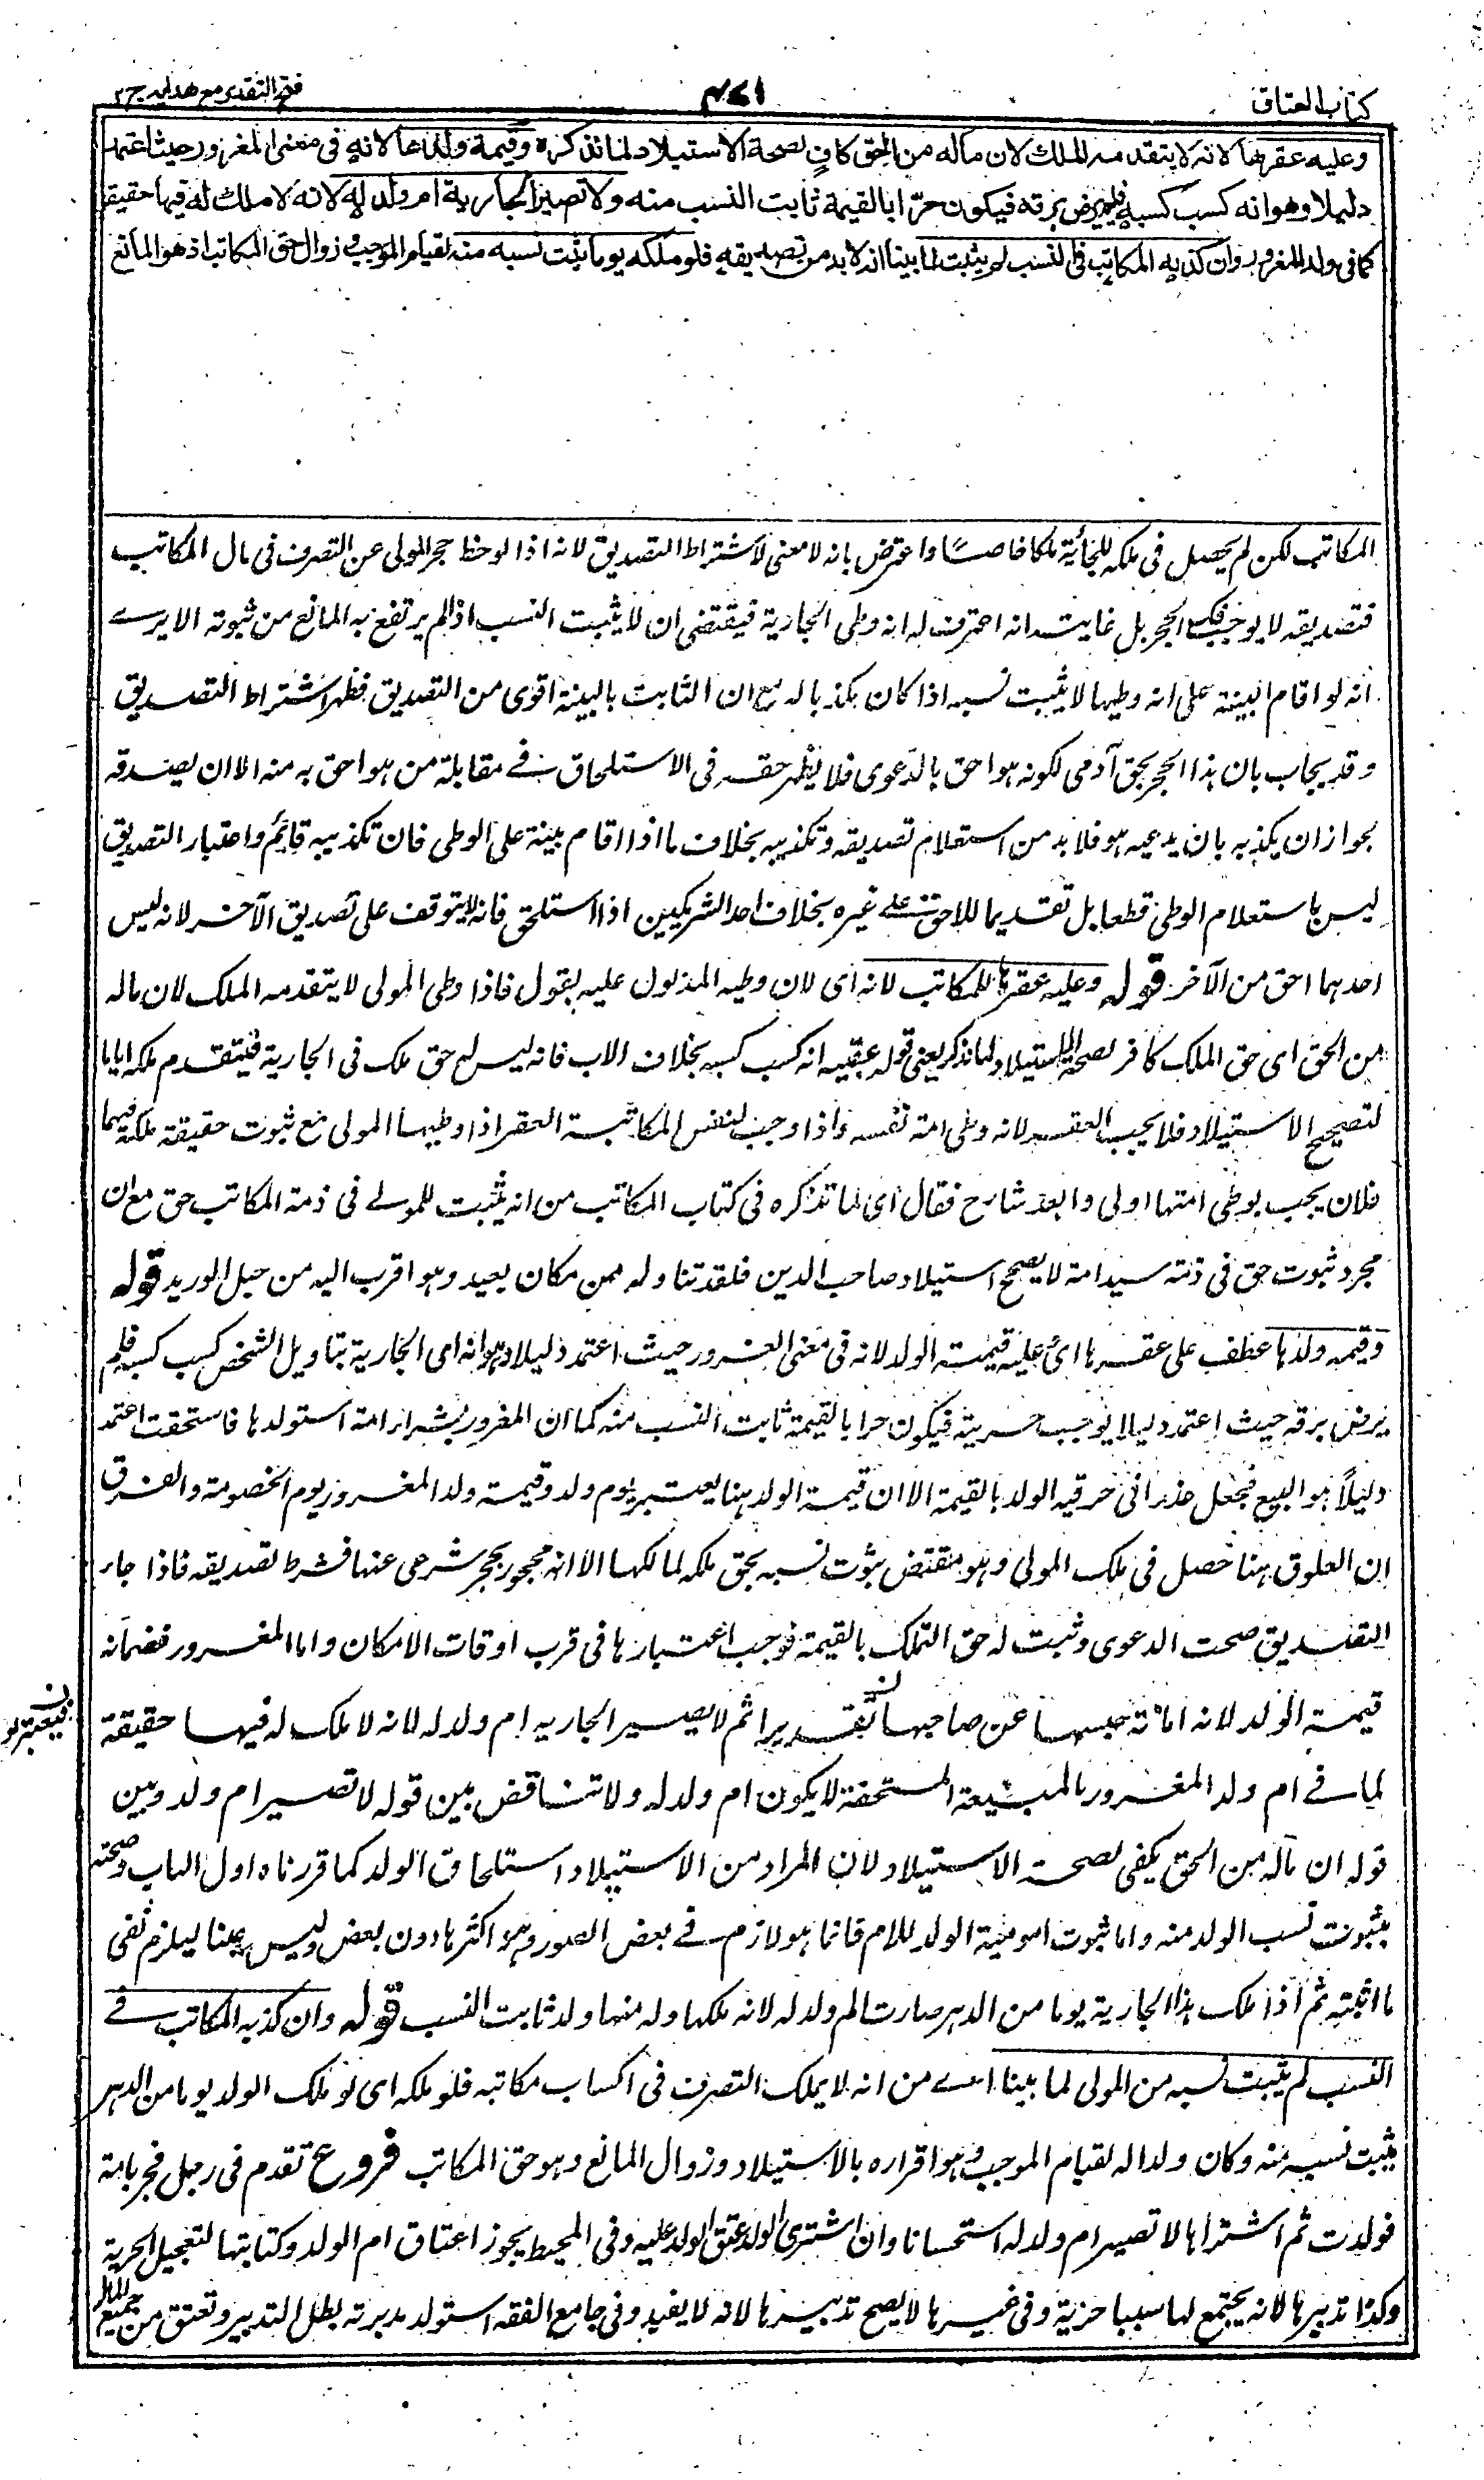 كتاب العتاق
٤٧١
فتح القدير مع هدايه ج ٢
وعليه عقرها لانه لا يتقدمه الملك لان ماله من الحق كاف لصحة الاستيلاد لما نذكره وقيمة ولدها لانه فى معنى المغرور حيث اعتمد
دليلا وهو انه كسب كسبه فلم يرض برقه فيكون حرا بالقيمة ثابت النسب منه ولا تصير الجارية ام ولد له لانه لا ملك له فيها حقيقة
كما فى ولد المغرور وان كذبه المكاتب فى النسب لم يثبت لما بينا انه لابد من تصديقه فلو ملكه يوما ثبت نسبه منه لقيام الموجب وزوال حق المكاتب اذ هو المانع
المكاتب لكن لم يحصل فى ملكه للجائية ملكا خاصا واعترض بانه لا معنى لاشتراط التصديق لانه اذا لوحظ حجر المولى عن التصرف فى مال المكاتب
فتصديقه لا يوجب فك الحجر بل غايته انه اعترف له انه وطى الجارية فيقتضى ان لا يثبت النسب اذ لم يرتفع به المانع من ثبوته الا يرے
انه لو اقام البينة على انه وطيها لا يثبت نسبه اذا كان يكذبه المولى مع ان الثابت بالبينة اقوى من التصديق فظهر اشتراط التصديق
وقد يجاب بان هذا الحجر بحق آدمى لكونه هو احق بالدعوى فلا يظهر حقه فى الاستلحاق فے مقابلة من هو احق به منه الا ان يصدقه
لجواز ان يكذبه بان يدعيه هو فلا بد من استعلام تصديقه وتكذيبه بخلاف ما اذا اقام بينة على الوطى فان تكذيبه قائم واعتبار التصديق
ليس باستعلام الوطى قطعا بل تقديما للاحق على غيره بخلاف احد الشريكين اذا استلحق فانه لا يتوقف على تصديق الآخر لانه ليس
احدهما احق من الآخر قوله وعليه عقرها للمكاتب لانه اى لان وطيه المدلول عليه بقول فاذا وطى المولى لا يتقدمه الملك لان ماله
من الحق اى حق الملك كاف لصحة الاستيلاد لما نذكر يعنى قوله عقيبه انه كسب كسبه بخلاف الاب فانه ليس له حق ملك فى الجارية فيتقدم ملكه اياها
لتصحيح الاستيلاد فلا يجب العقر لانه وطى امة نفسه واذا وجب لنفس المكاتبة العقر اذا وطيها المولى مع ثبوت حقيقة ملكه فيها
فلان يجب بوطى امتها اولى وابعد شارح فقال اى لما تذكره فى كتاب المكاتب من انه يثبت للمولے فى ذمة المكاتب حق مع ان
مجرد ثبوت حق فى ذمة سيد امة لا يصحح استيلاد صاحب الدين فلقد تناوله من مكان بعيد وهو اقرب اليه من حبل الوريد قوله
وقيمه ولدها عطف على عقرها اى عليه قيمة الولد لانه فى معنى المغرور حيث اعتمد دليلا وهو انه اى الجارية بتاويل الشخص كسب كسبه فلم
يرض برقه حيث اعتمد دليلا يوجب حريته فيكون حرا بالقيمة ثابت النسب منه كما ان المغرور بشراء امة استولدها فاستحقت اعتمد
دليلا هو البيع فجعل عذرا فى حرية الولد بالقيمة الا ان قيمة الولد هنا يعتبر يوم ولد وقيمة ولد المغرور يوم الخصومة والفرق
ان العلوق هنا حصل فى ملك المولى وهو مقتض ثبوت نسبه بحق ملكه لما لكها الا انه محجور بحجر شرعى عنها فشرط تصديقه فاذا جاء
التصديق صحت الدعوى وثبت له حق التملك بالقيمة فوجب اعتبارها فى قرب اوقات الامكان واما المغرور فضمانه
قيمة الولد لانه امانة حبسها عن صاحبها تقديرا ثم لا يصير الجاريه ام ولد له لانه لا ملك له فيها حقيقة
كما فے ام ولد المغرور بالمبيعة المستحقة لا يكون ام ولد له ولا تناقض بين قوله لا تصير ام ولد وبين
قوله ان ماله من الحق يكفى لصحة الاستيلاد لان المراد من الاستيلاد استلحاق الولد كما قررناه اول الباب وصحته
بثبوت نسب الولد منه واما ثبوت امومية الولد للام فانما هو لازم فے بعض الصور وهو اكثرها دون بعض وليس هنا ليلزم نفى
ما اثبته ثم اذا ملك هذا الجارية يوما من الدهر صارت ام ولد له لانه ملكها وله منها ولد ثابت النسب قوله وان كذبه المكاتب فے
النسب لم يثبت نسبه من المولى لما بينا اے من انه لا يملك التصرف فى اكساب مكاتبه فلو ملكه اى لو ملك الولد يوما من الدهر
يثبت نسبه منه وكان ولدا له لقيام الموجب وهو اقراره بالاستيلاد وزوال المانع وهو حق المكاتب فروع تقدم فى رجل فجر بامة
فولدت ثم اشتراها لا تصير ام ولد له استحسانا وان اشترى الولد عتق الولد عليه وفى المحيط يجوز اعتاق ام الولد وكتابتها لتعجيل الحرية
وكذا تدبيرها لانه يجتمع لها سببا حرية وفى غيرها لا يصح تدبيرها لانه لا يفيد وفى جامع الفقه استولد مدبرته بطل التدبير وتعتق من جميع المال